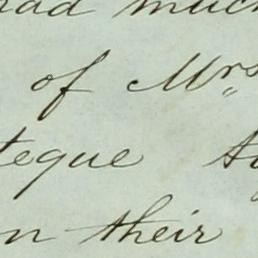 had much
of Mrs
teque
n their